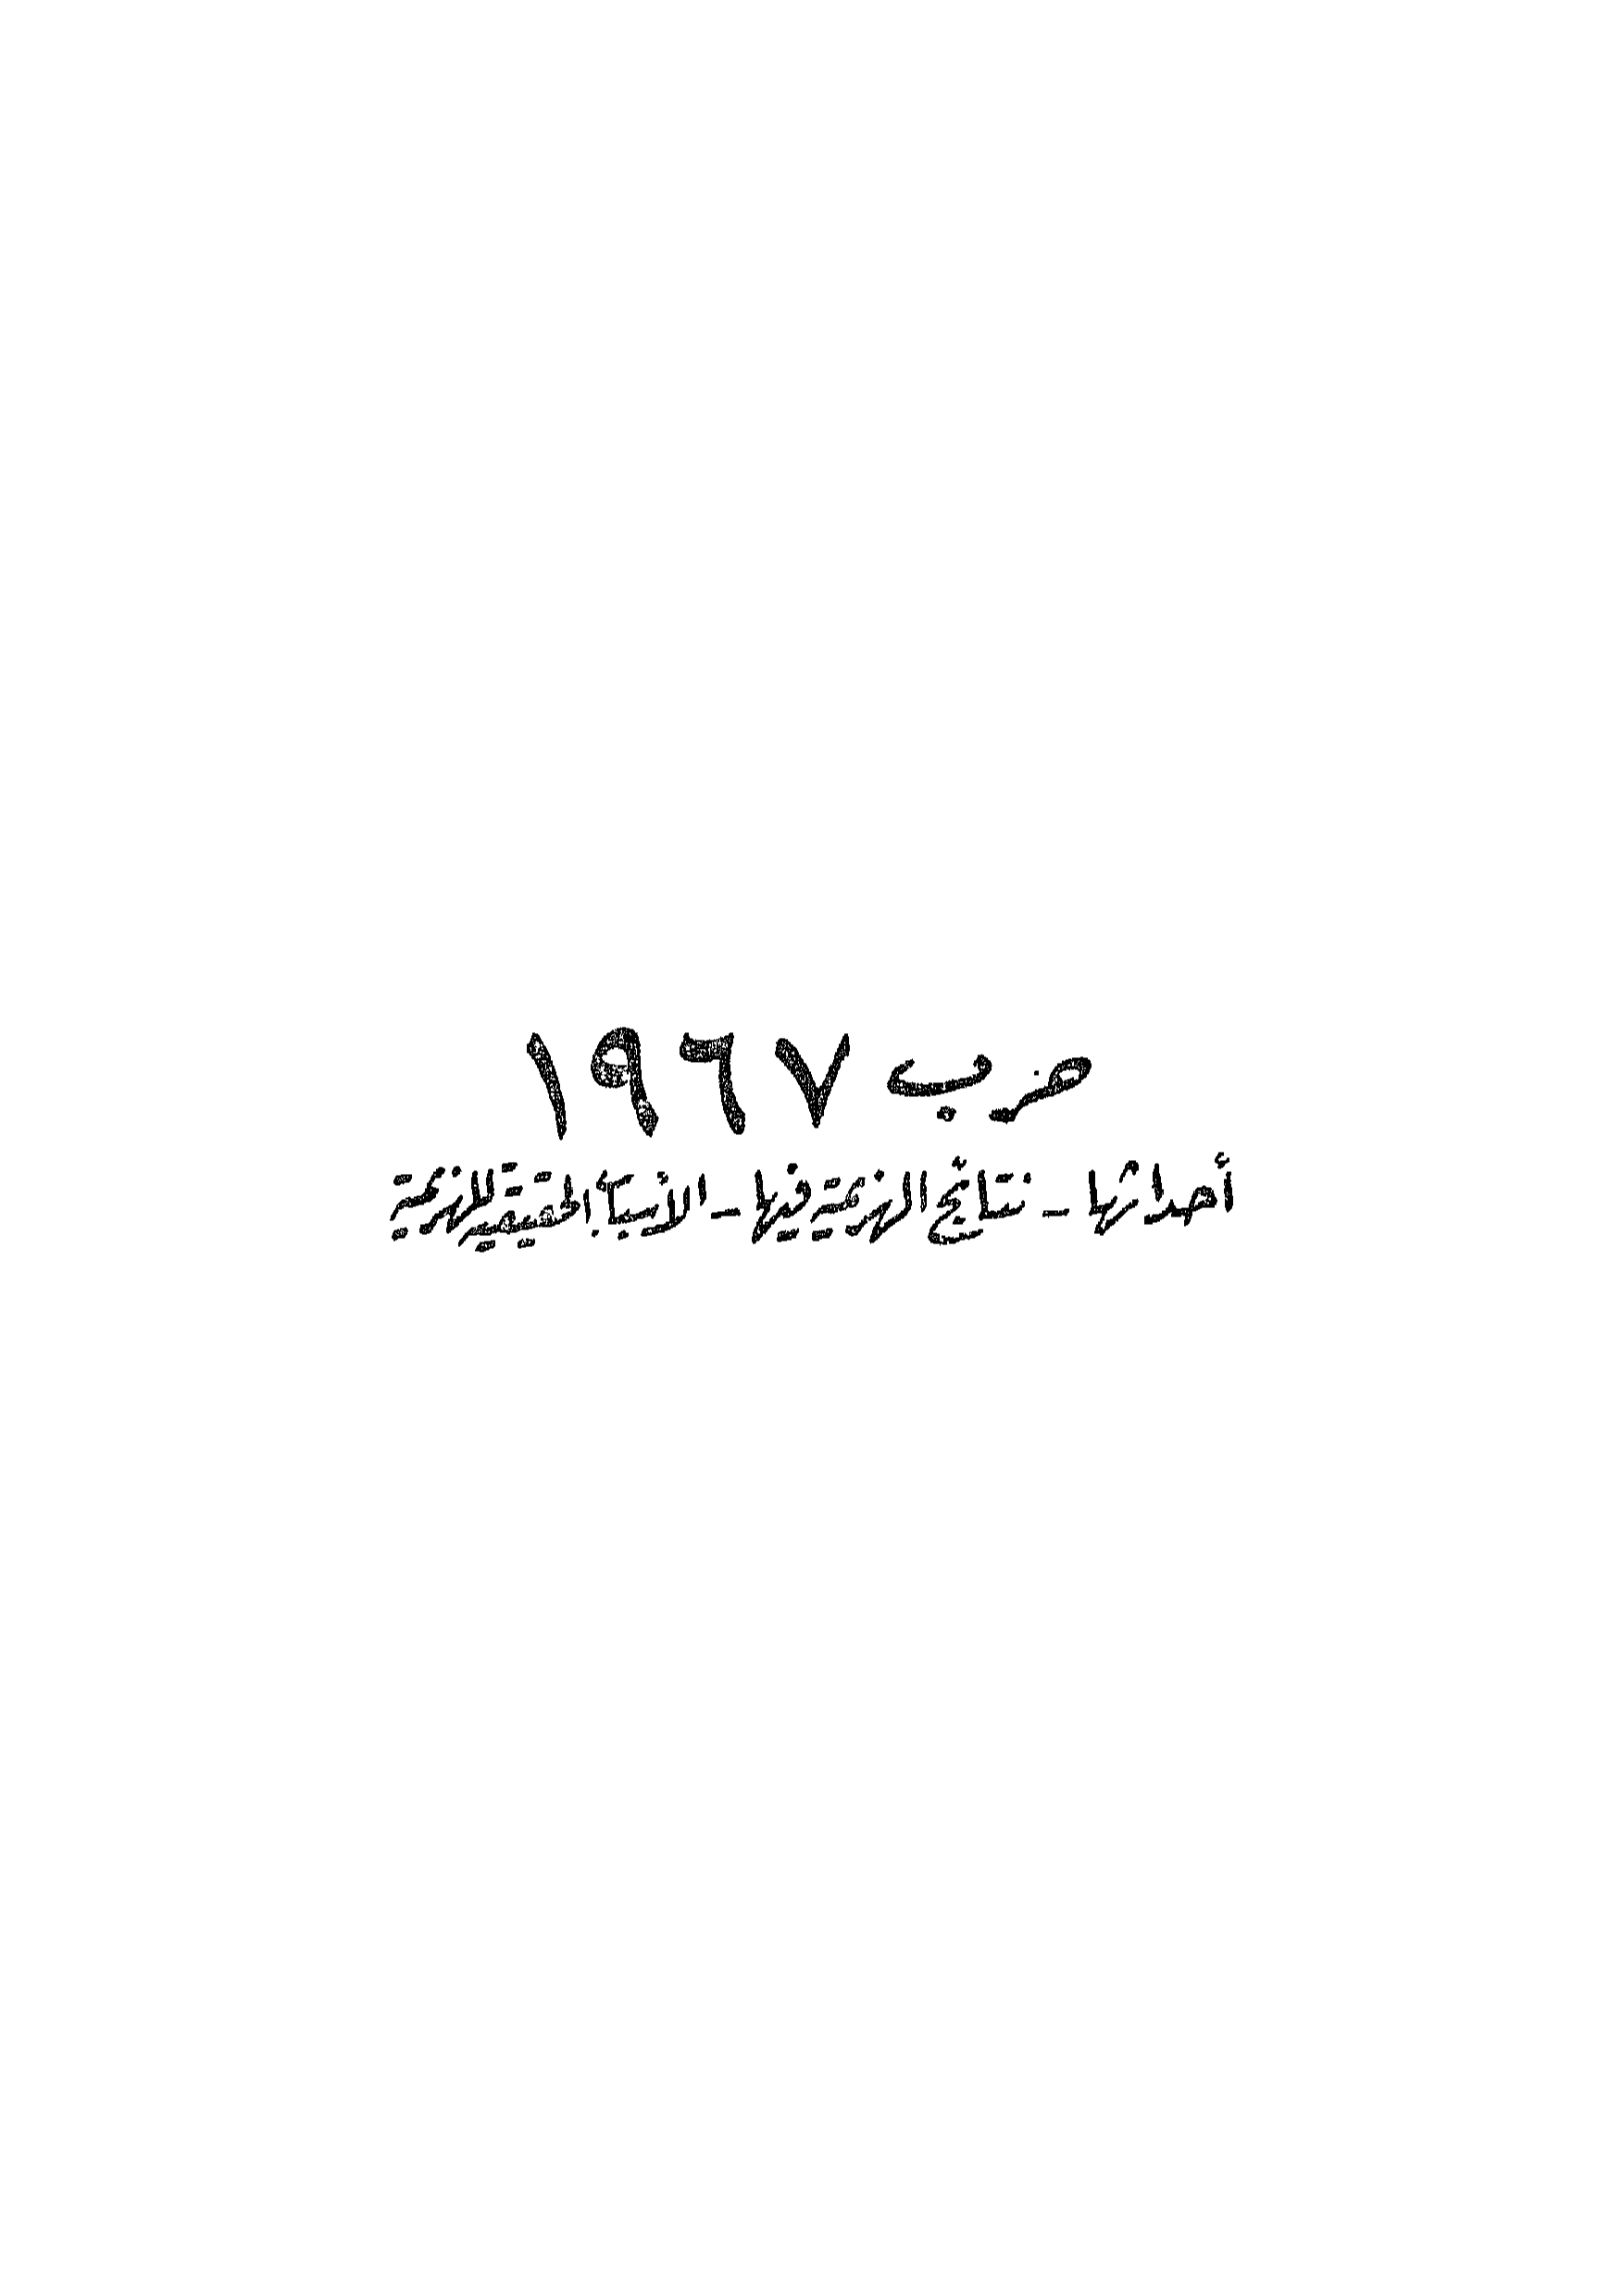 حرب ١٩٦٧
أحداثها - نتائج الهزيمة فيها - الأسباب الحقيقية للهزيمة